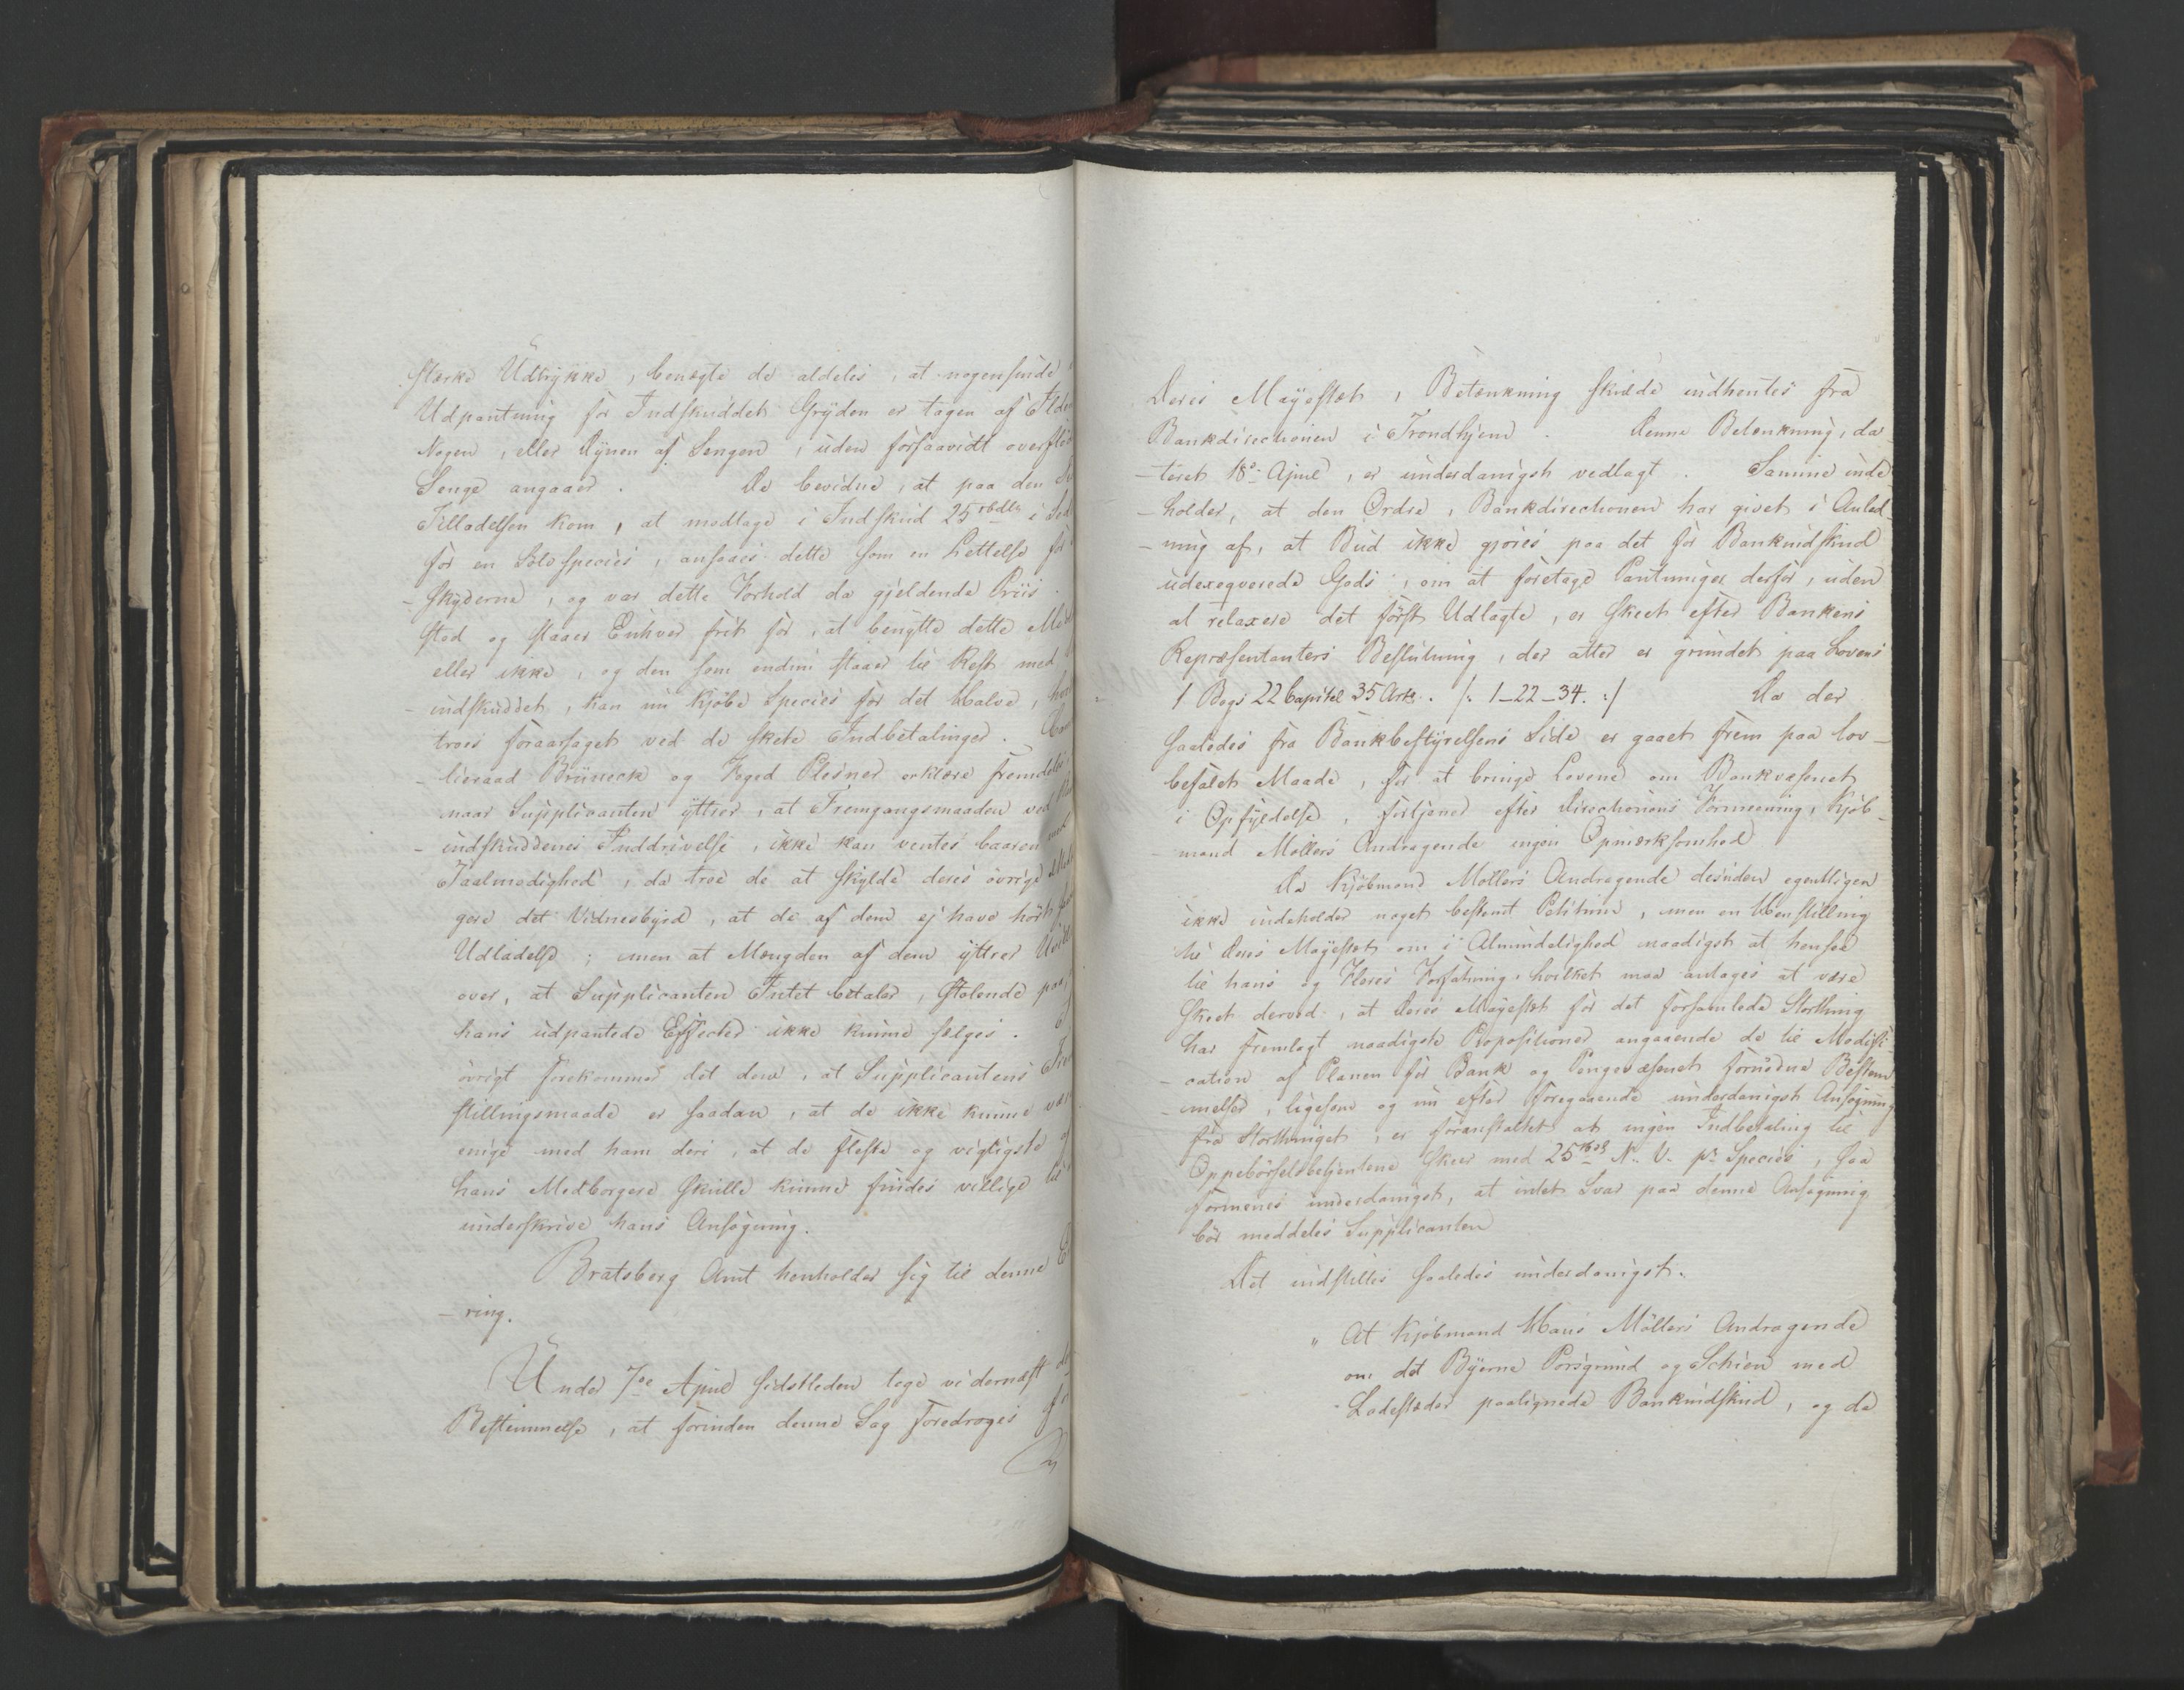 stærke Udtrykke, benægte de aldeles, at nogensinde
Udpantning for Indskuddet Gryden er tagen af Ilden
Nogen, eller Dynen af Sengen, uden forsaavidt overflø
Senge angaaer. De bevidne, at paa den
Tilladelsen kom, at modtage i Indskud 25 rbdlr i Sed
for en Sølvspecies, ansaaes dette som en Lettelse for
-skyderne, og var dette Forhold da gjeldende Priis.
stod og staaer Enhver frit for, at benytte dette
eller ikke, og den som endnu staaer til Rest med
-indskuddet, kan nu kjøbe Species for det halve,
troes foraarsaget ved de skete Indbetalinger.
-lieraad Brüneck og Foged Plesner erklære fremdeles,
naar Supplicanten yttrer, at Fremgangsmaaden ved
-indskuddenes Inddrivelse, ikke kan ventes baaren med
Taalmodighed, da troe de at skylde deres øvrige
gere det Vidnesbyrd, at de af dem ej have hørt
Udladelse; men at Mængden af dem yttrer
over, at Supplicanten Intet betaler, stolende paa,
hans udpantede Effecter ikke kunne sælges.
øvrigt forekommer det dem, at Supplicantens
stillingsmaade er saadan, at de ikke kunne være
enige med ham deri, at de fleste og vigtigste
hans Medborgere skulle kunne findes villige til
underskrive hans Ansøgning.
Bratsberg Amt henholder sig til denne
-ring.
Under 7de April sidstleden toge vi dernæst
Bestemmelse, at forinden denne Sag foredroges
Deres Mayestæt, Betænkning skulde indhentes fra
Bankdirectionen i Trondhjem. Denne Betænkning, da-
-teret 18de April, er underdanigst vedlagt. Samme inde-
-holder, at den Ordre, Bankdirectionen har givet i Anled-
-ning af, at Bud ikke gjøres paa det for Bankindskud
udexeqverede Gods, om at foretage Pantninger derfor, uden
at relaxere det først Udlagte, er skeet efter Bankens
Repræsentanters Beslutning, der atter er grundet paa Lovens
1 Bogs 22 Capitel 35 Art. /: 1_22_34. :/ Da der
saaledes fra Bankbestyrelsens Side er gaaet frem paa lov-
befalet Maade, for at bringe Lovene om Bankvæsenet
i Opfyldelse, fortjener efter Directionens Formeening, Kjøb-
-mand Møllers Andragende ingen Opmærksomhed
Da Kjøbmand Møllers Andragende desuden egentligen
ikke indeholder noget bestemt Petitum, men en Henstilling
til Deres Mayestæt om i Almindelighed naadigst at hensee
til hans og Fleres Forfatning, hvilket maa antages at være
skeet derved, at Deres Mayestæt for det forsamlede Storthing
har fremlagt naadigste Propositioner angaaende de til Modifi-
-cation af Planen for Bank og Pengevæsenet fornødne Bestem-
-melser, ligesom og nu efter foregaaende underdanigst Ansøgning
fra Storthinget, er foranstaltet at ingen Indbetaling til
Oppebørselsbetjentene skeer med 25 rbd N. V. pr Species, saa
formenes underdanigst, at intet Svar paa denne Ansøgning
bør meddeles Supplicanten
Det indstilles saaledes underdanigst:
" At Kjøbmand Hans Møllers Andragende
om det Byerne Porsgrund og Schien med
Ladesteder paalignede Bankindskud, og de